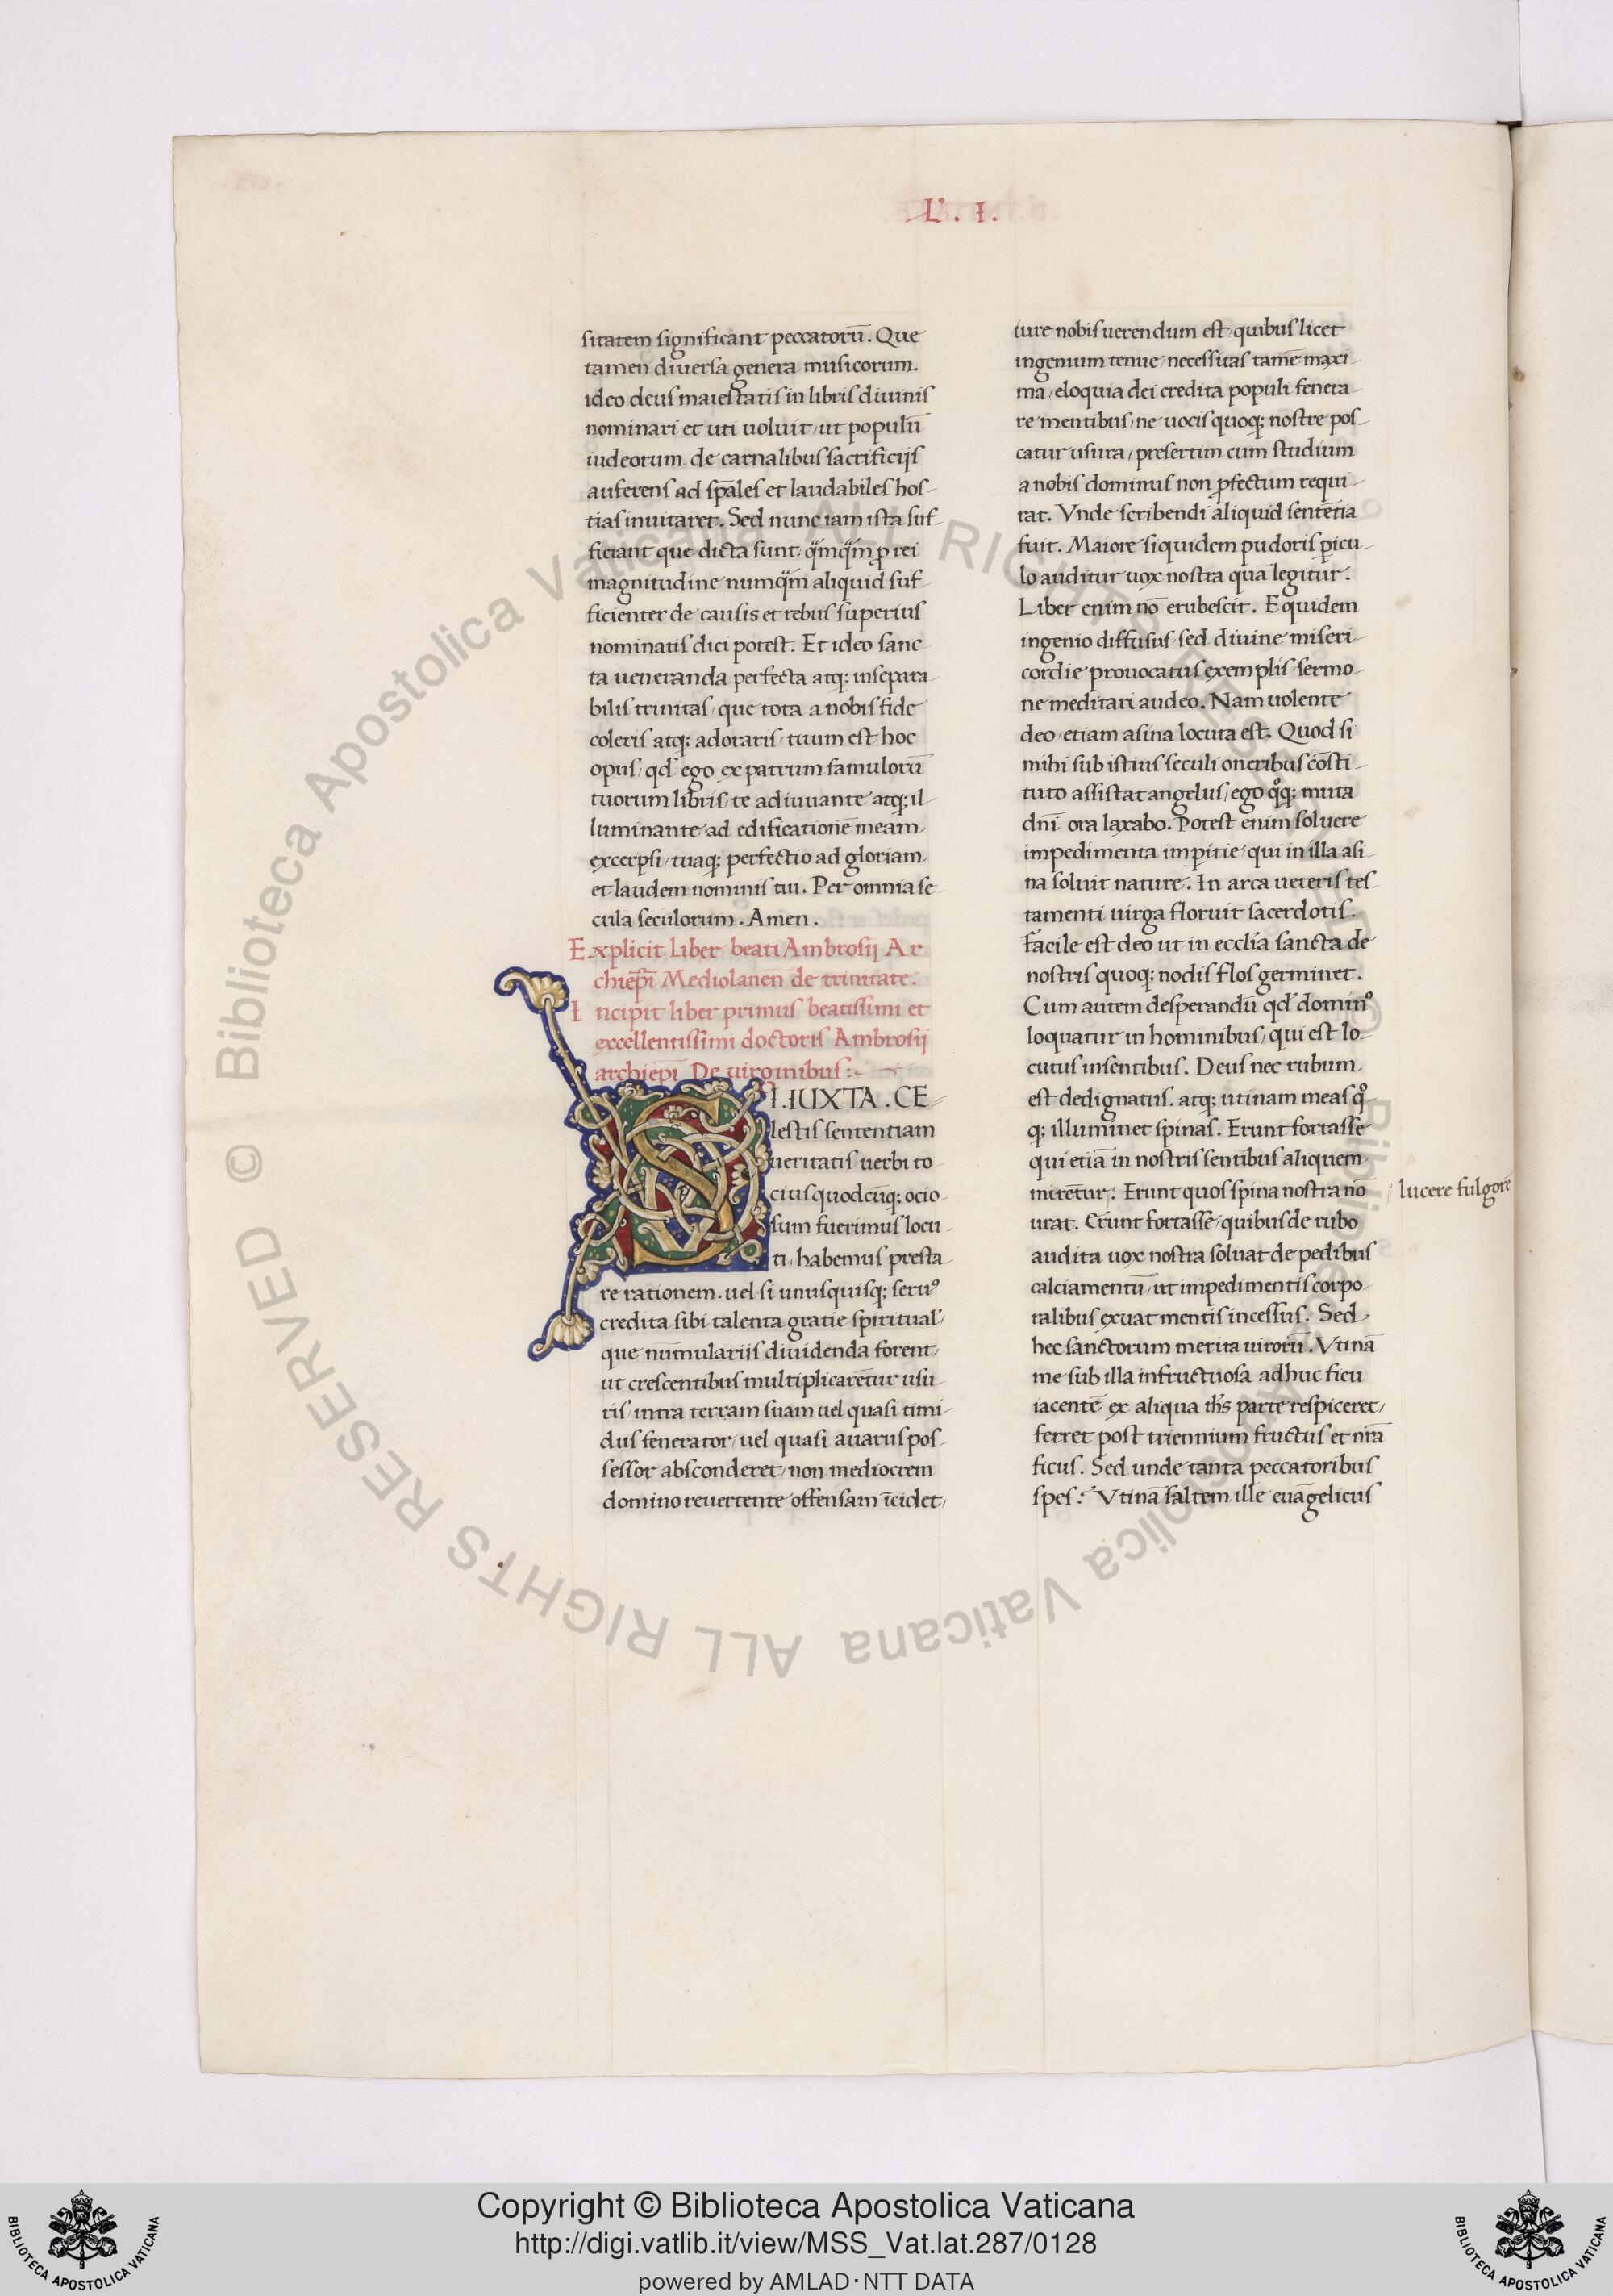 L'. I.
sitatem significant peccatorū. Que
tamen diuersa genera musicorum.
ideo deus maiestatis in libris diuinis
nominari et uti uoluit, ut populū
iudeorum de carnalibus sacrificijs
auferens ad sp̄ales et laudabiles hos-
tias inuitaret. Sed nunc iam ista suf-
ficiant que dicta sunt, qᷓmqᷓm ꝓ rei
magnitudine numqᷓm aliquid suf-
ficienter de causis et rebus superius
nominatis dici potest. Et ideo sanc-
ta ueneranda perfecta atq; insepara-
bilis trinitas, que tota a nobis fide
coleris atq; adoraris, tuum est hoc
opus, qd' ego ex patrum famulorū
tuorum libris, te adiuuante atq; il-
luminante ad edificationē meam
excerpsi, tuaq; perfectio ad gloriam
et laudem nominis tui. Per omnia se-
cula seculorum. Amen.
Explicit Liber beati Ambrosij Ar
chiep̄i Mediolanen̄ de trinitate.
Incipit liber primus beatissimi et
excellentissimi doctoris Ambrosij
archiep̄i De uirginibus:
SI. IUXTA. CE-
lestis sententiam
ueritatis uerbi to-
cius quodcūq; ocio-
sum fuerimus locu-
ti, habemus presta-
re rationem. uel si unusquisq; seruꝰ
credita sibi talenta gratie spiritual'
que nūmulariis diuidenda forent,
ut crescentibus multiplicarētur usu-
ris, intra terram suam uel quasi timi-
dus fenerator, uel quasi auarus pos-
sessor absconderet, non mediocrem
domino reuertente offensam īcidet,
iure nobis uerendum est, quibus licet
ingenium tenue, necessitas tamē maxi-
ma, eloquia dei credita populi fenera-
re mentibus, ne uocis quoq; nostre pos-
catur usura, presertim cum studium
a nobis dominus non ꝓfectum requi-
rat. Vnde scribendi aliquid sentētia
fuit. Maiore siquidem pudoris ꝑicu-
lo auditur uox nostra quā legitur.
Liber enim nō erubescit. Equidem
ingenio diffusus, sed diuine miseri-
cordie prouocatus exemplis, sermo-
ne meditari audeo. Nam uolente
deo, etiam asina locuta est. Quod si
mihi sub istius seculi oneribus cōsti-
tuto assistat angelus, ego qͦq; muta
dn̄i ora laxabo. Potest enim soluere
impedimenta imꝑitie, qui in illa asi-
na soluit nature. In arca ueteris tes-
tamenti uirga floruit sacerdotis.
facile est deo ut in eccl̄ia sancta de
nostris quoq; nodis flos germinet.
Cum autem desperandū qd' dominꝰ
loquatur in hominibus, qui est lo-
cutus in sentibus. Deus nec rubum
est dedignatus. atq; utinam meas qͦ-
q; illuminet spinas. Erunt fortasse
qui etiā in nostris sentibus aliquem
mirētur. Erunt quos spina nostra nō
lucere fulgorē
urat. Erunt fortasse, quibus de rubo
audita uox nostra soluat de pedibus
calciamentū, ut impedimentis corpo-
ralibus exuat mentis incessus. Sed
hec sanctorum merita uirorū. Vtinā
me sub illa infructuosa adhuc ficu
iacentē ex aliqua ih̄s parte respiceret,
ferret post triennium fructus et nr̄a
ficus. Sed unde tanta peccatoribus
spes? Vtinā saltem ille euāgelicus
© Biblioteca Apostolica Vaticana ALL RIGHTS RESERVED © Biblioteca Apostolica Vaticana ALL RIGHTS RESERVED
Copyright © Biblioteca Apostolica Vaticana
http://digi.vatlib.it/view/MSS_Vat.lat.287/0128
powered by AMLAD·NTT DATA
BIBLIOTECA APOSTOLICA VATICANA
BIBLIOTECA APOSTOLICA VATICANA